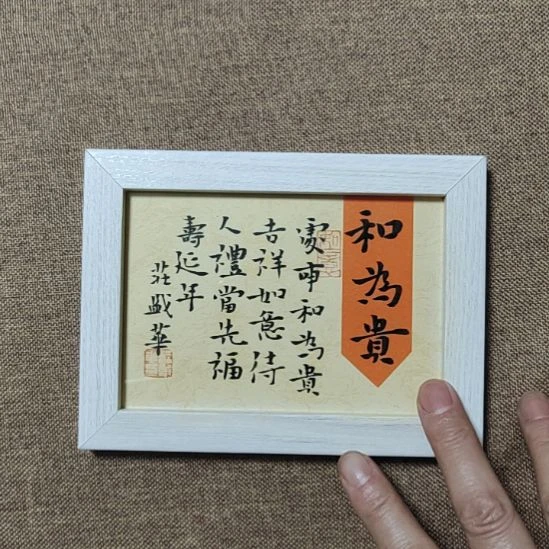 和為貴
處事和為貴
吉祥如意待
人禮當先福
壽延年
莊盛華